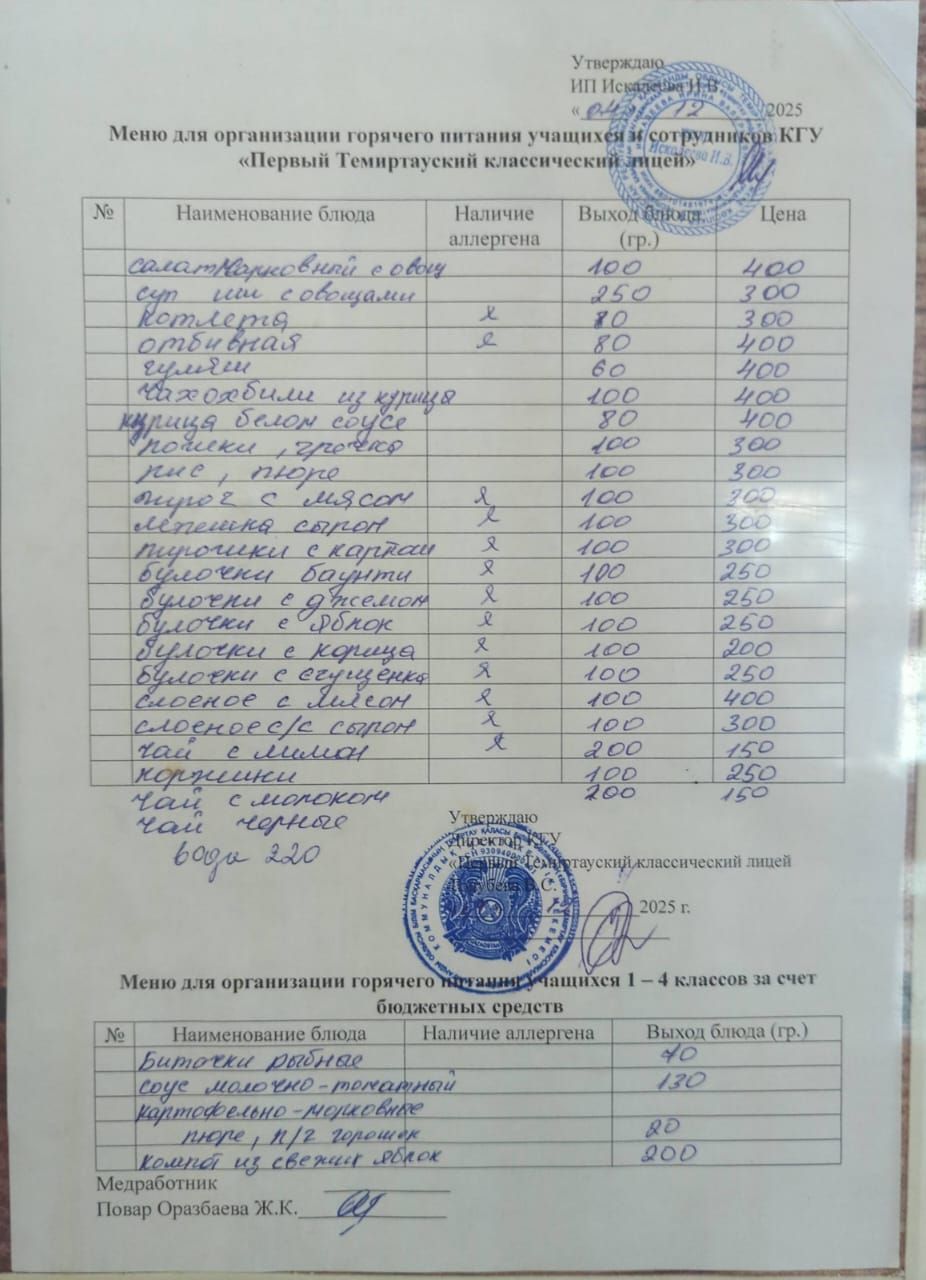 Утверждаю
ИП Искалеева И.В.
« 04 » 12 2025
Меню для организации горячего питания учащихся и сотрудников КГУ
«Первый Темиртауский классический лицей»
№ Наименование блюда Наличие аллергена Выход блюда (гр.) Цена
салат марковный с овощ 100 400
суп иш с овощами 250 300
котлета я 80 300
отбивная я 80 400
гуляш 60 400
чахохбили из курица 100 400
курица белом соусе 80 400
рошки , гречка 100 300
рис , пюре 100 300
пирог с мясом я 100 300
лепешка сыром я 100 300
пирошки с картош я 100 300
булочки баунти я 100 250
булочки с джемом я 100 250
булочки с яблок я 100 250
булочки с корица я 100 200
булочки с сгущенка я 100 250
слоеное с мясом я 100 400
слоеное с/с сыром я 100 300
чай с лимон я 200 150
коржики 100 250
чай с молоком 200 150
чай черные
вода 220
Утверждаю
Директор КГУ
«Первый Темиртауский классический лицей
Голубева В.С.
2025 г.
Меню для организации горячего питания учащихся 1 – 4 классов за счет
бюджетных средств
№ Наименование блюда Наличие аллергена Выход блюда (гр.)
Биточки рыбные 70
соус молочно-томатный 130
картофельно-морковные
пюре, п/г горошек 20
компот из свежих яблок 200
Медработник
Повар Оразбаева Ж.К.